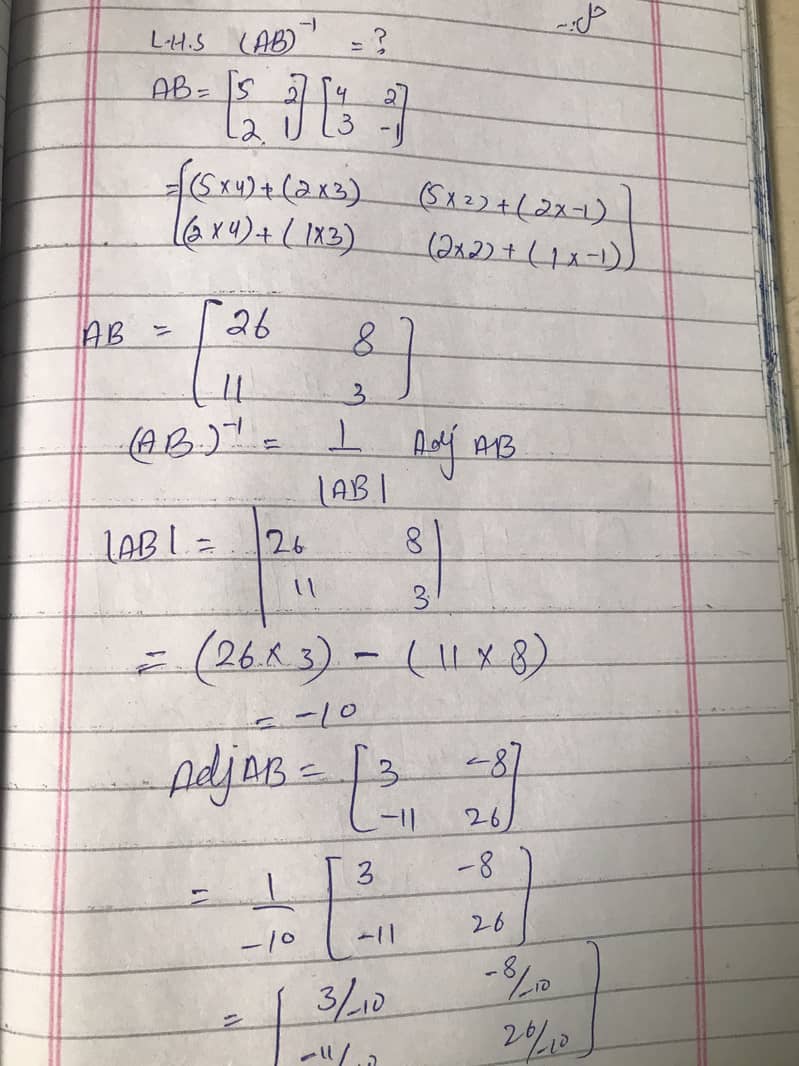 L.H.S (AB)⁻¹ = ?
AB = [5 2 2 1] [4 2 3 -1]
= [(5×4)+(2×3) (5×2)+(2×-1)
(2×4)+(1×3) (2×2)+(1×-1)]
AB = [26 8
11 3]
(AB)⁻¹ = 1/|AB| Adj AB
|AB| = |26 8
11 3|
= (26×3) - (11×8)
= -10
Adj AB = [3 -8
-11 26]
= 1/-10 [3 -8
-11 26]
= [3/-10 -8/-10
26/-10]